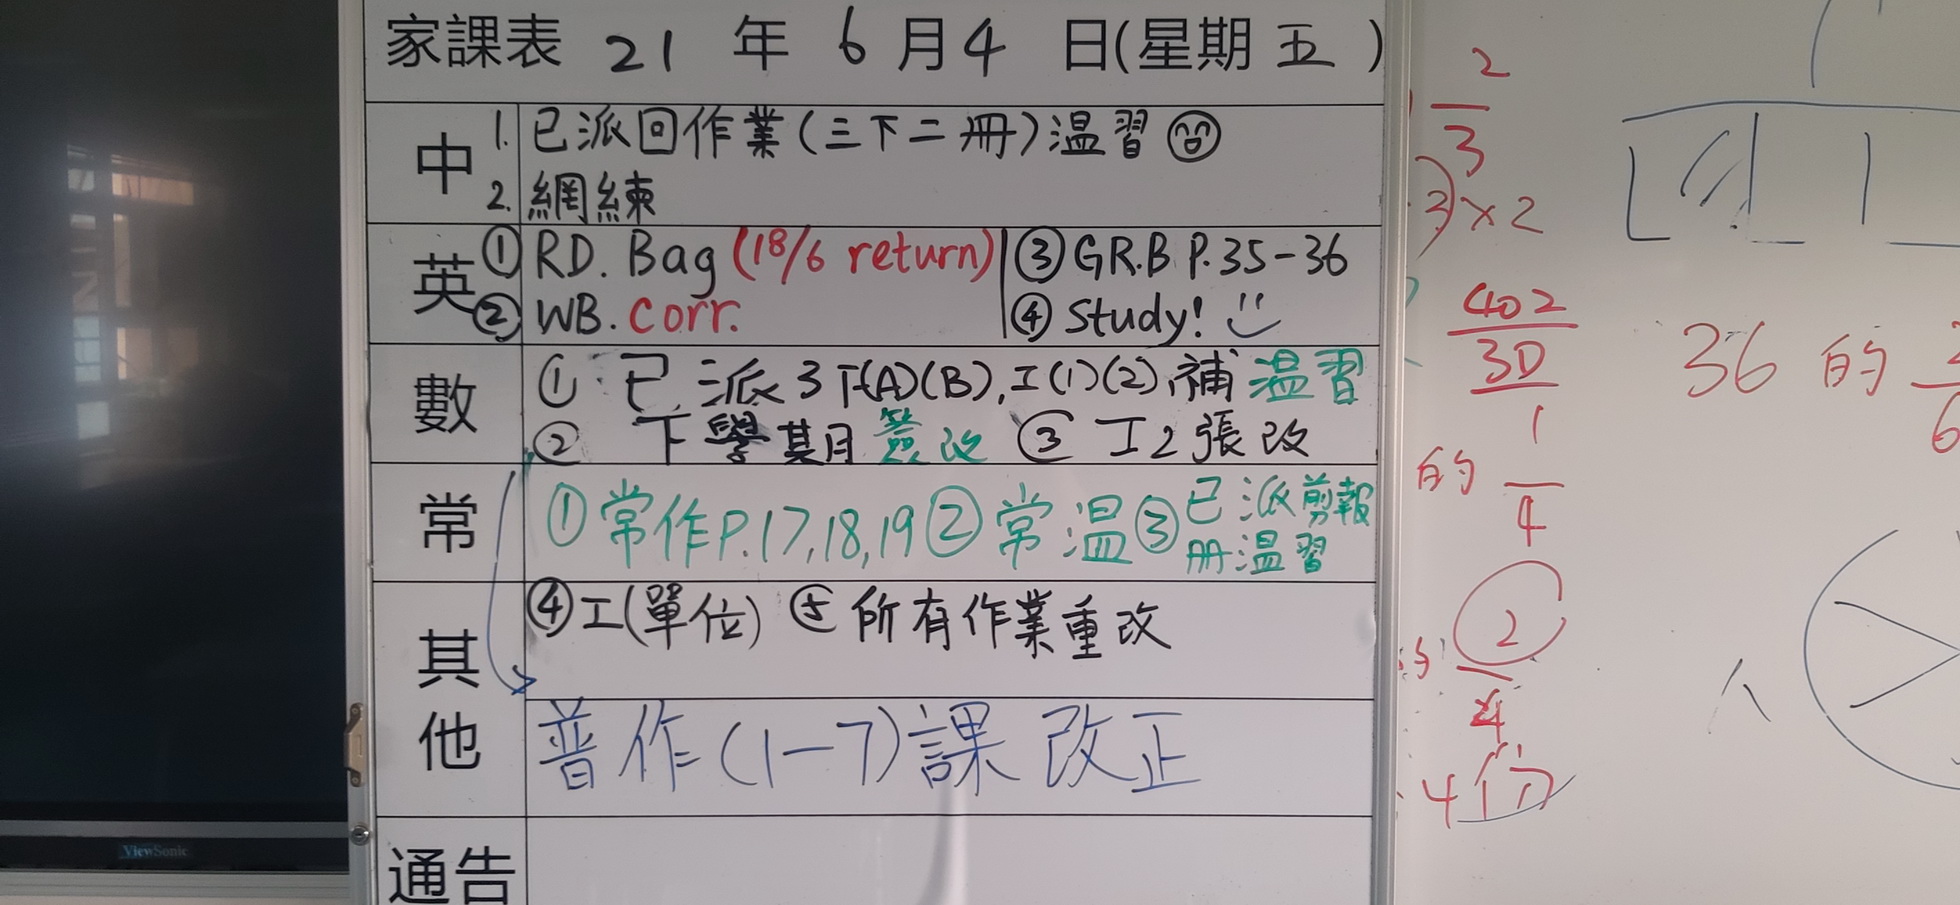 家課表 21 年 6 月 4 日(星期 五 )
中
1. 已派回作業(三下二冊)温習
2. 網練
英
① RD. Bag (18/6 return)
② WB. corr.
③ GR.B P.35-36
④ Study!
數
① 已派3下(A)(B),工(1)(2),補 温習
② 下學期簽改 ③ 工2張改
常
① 常作P.17,18,19 ② 常温 ③ 已派剪報
册温習
其他
④ 工(單位) ⑤ 所有作業重改
普作(1-7)課 改正
通告
ViewSonic
2
3
3)×2
402
30
1
4
的
2
4
36 的
6